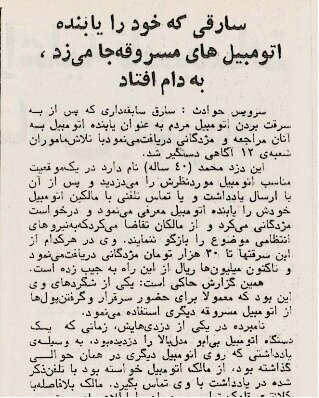 سارقی که خود را یابنده
اتومبیل های مسروقه‌جا می‌زد ،
به دام افتاد
سرویس حوادث : سارق سابقه‌داری که پس از به
سرقت بردن اتومبیل مردم به عنوان یابنده اتومبیل به
آنان مراجعه و مژدگانی دریافت‌می‌نمود‌با تلاش‌ماموران
شعبه‌ی ۱۲ آگاهی دستگیر شد.
این دزد محمد (۴۰ ساله) نام دارد در یک‌موقعیت
مناسب اتومبیل موردنظرش را می‌دزدید و پس از آن
با ارسال یادداشت و یا تماس تلفنی با مالکین اتومبیل
خودش را یابنده اتومبیل معرفی می‌نمود و درخواست
مژدگانی می‌کرد و از مالکان تقاضا می‌کردکه‌به‌نیروهای
انتظامی موضوع را بازگو ننمایند. وی در هرکدام از
این سرقتها تا ۳۰ هزار تومان مژدگانی دریافت‌می‌نمود
و تاکنون میلیون‌ها ریال از این راه به جیب زده است.
همین گزارش حاکی است: یکی از شگردهای وی
این بود که معمولا برای حضور سرقرار وگرفتن‌پول‌ها
از اتومبیل مسروقه دیگری استفاده می‌نمود.
نامبرده در یکی از دزدی‌هایش، زمانی که یک
دستگاه اتومبیل بی‌ام‌و مدل‌بالا را دزدیده‌بود، به وسیله‌ی
یادداشتی که روی اتومبیل دیگری در همان حوالی
گذاشته بود، از مالک اتومبیل خواسته بود با تلفن‌ذکر
شده در یادداشت با وی تماس بگیرد. مالک بلافاصله‌با